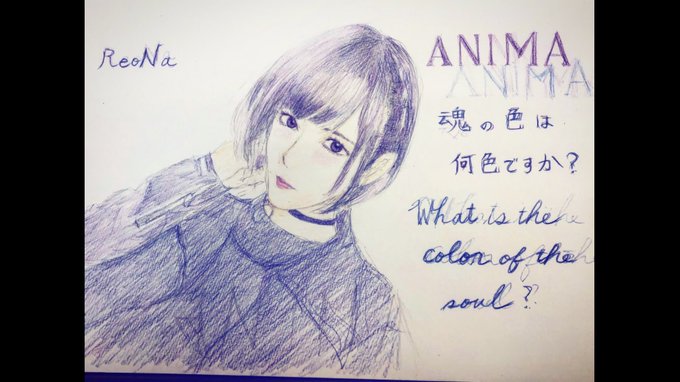 ReoNa
ANIMA
ANIMA
魂の色は
何色ですか?
What is the
color of the
soul?